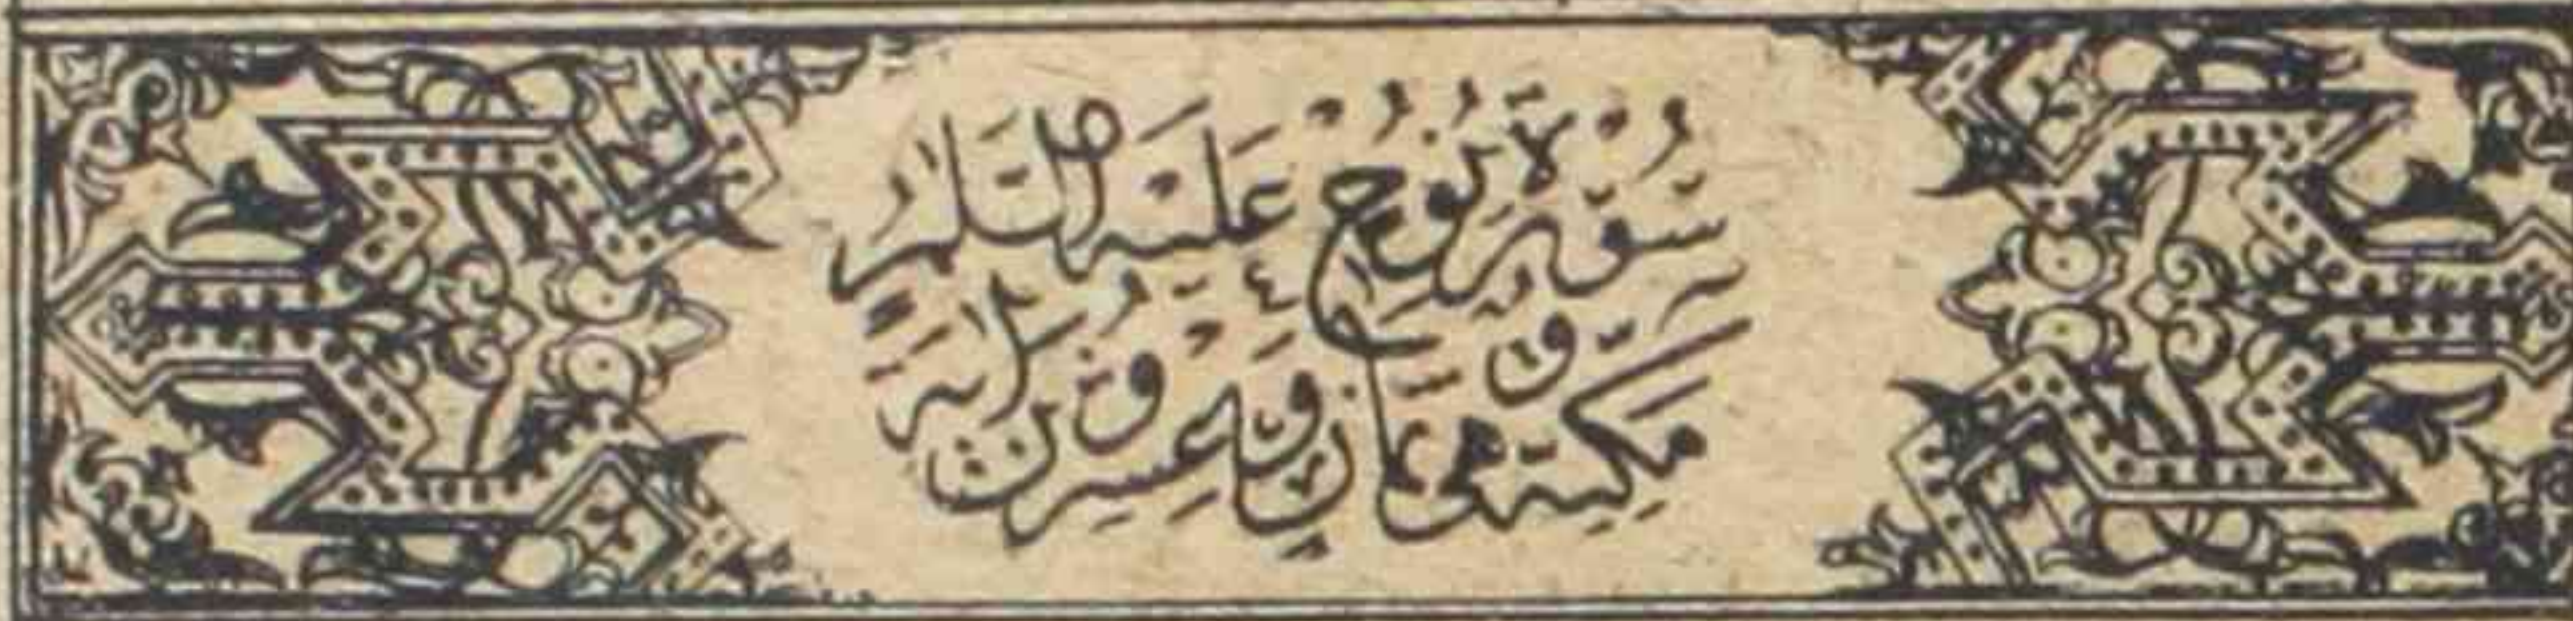 سُورَةُ نُوحٍ عَلَيْهِ السَّلَامُ
مَكِّيَّة وهى ثمان وعشرون اية